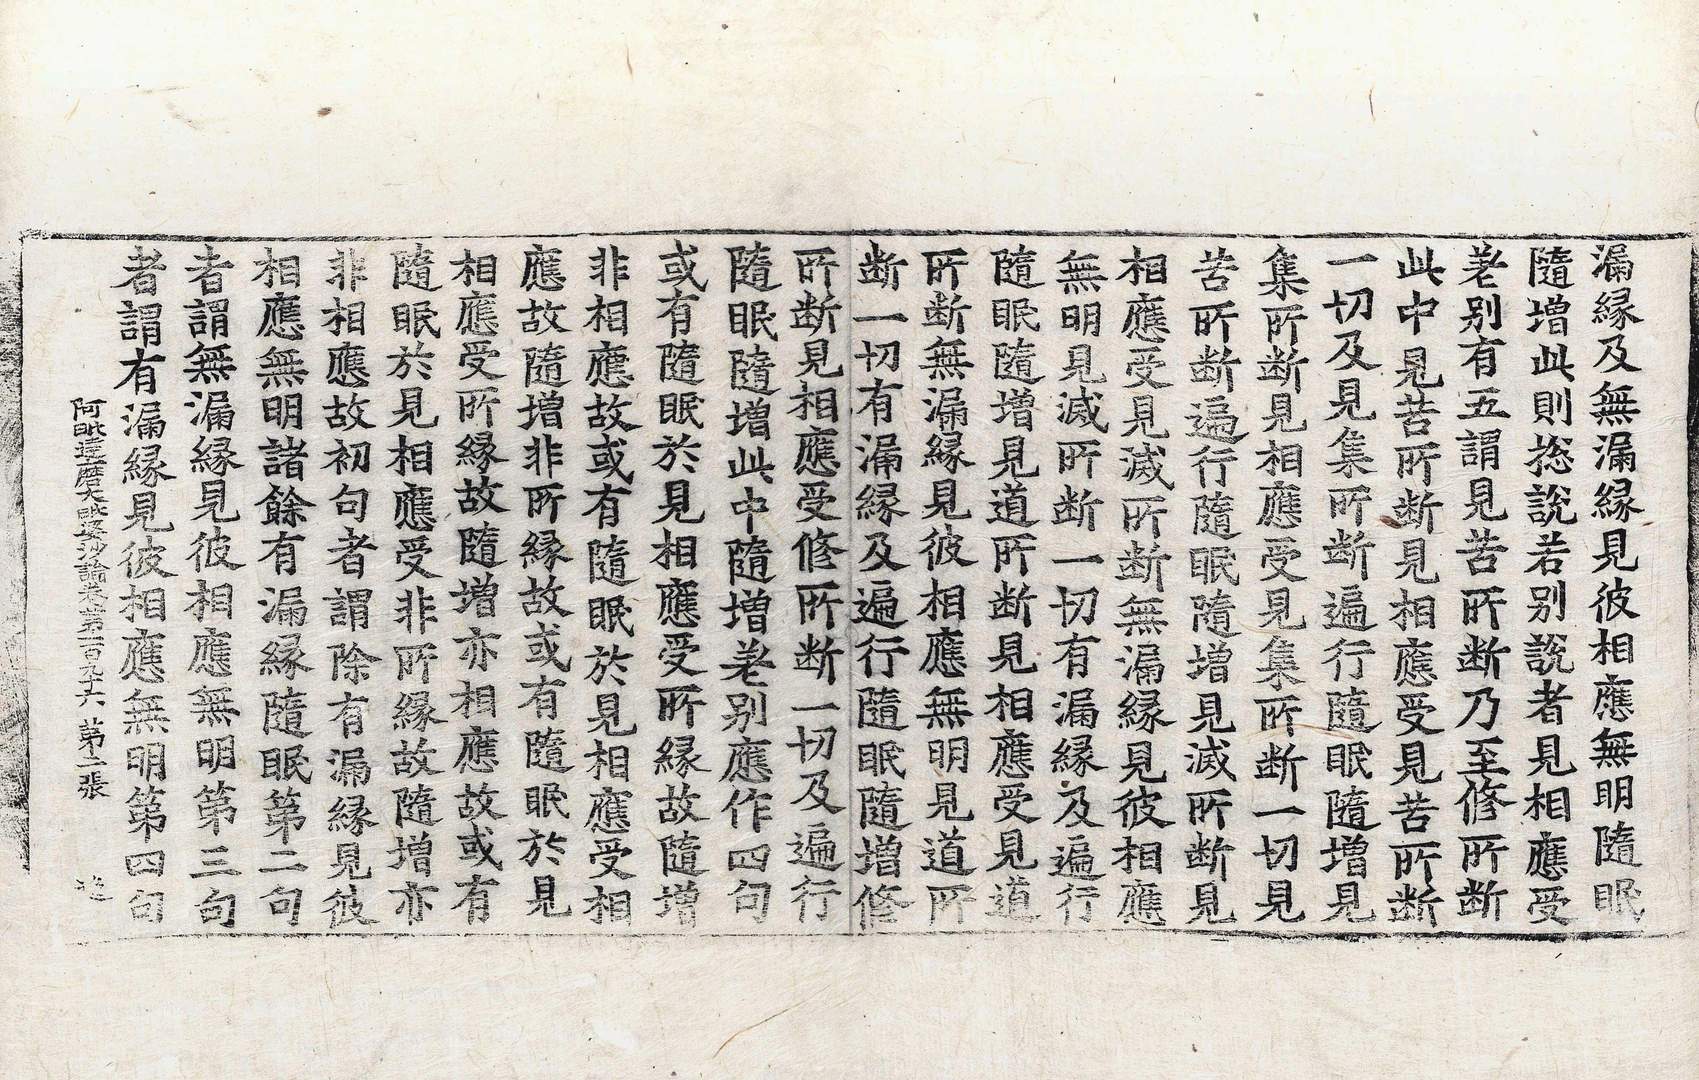 漏縁及無漏縁見彼相應無明隨眠
隨增此則揔說若別說者見相應受
差別有五謂見苦所斷乃至修所断
此中見苦所断見相應受見苦所断
一切及見集所断遍行隨眠隨增見
集所断見相應受見集所断一切見
苦所断遍行隨眠隨增見滅所断見
相應受見滅所断無漏縁見彼相應
無明見滅所断一切有漏縁及遍行
隨眠隨增見道所断見相應受見道
所断無漏縁見彼相應無明見道所
断一切有漏縁及遍行隨眠隨增修
所断見相應受修所断一切及遍行
隨眠隨增此中隨增差別應作四句
或有隨眠於見相應受所縁故隨增
非相應故或有隨眠於見相應受相
應故隨增非所縁故或有隨眠於見
相應受所縁故隨增亦相應故或有
隨眠於見相應受非所縁故隨增亦
非相應故初句者謂除有漏縁見彼
相應無明諸餘有漏縁隨眠第二句
者謂無漏縁見彼相應無明第三句
者謂有漏縁見彼相應無明第四句
阿毗達磨大毗婆沙論卷第一百九十六 第二張